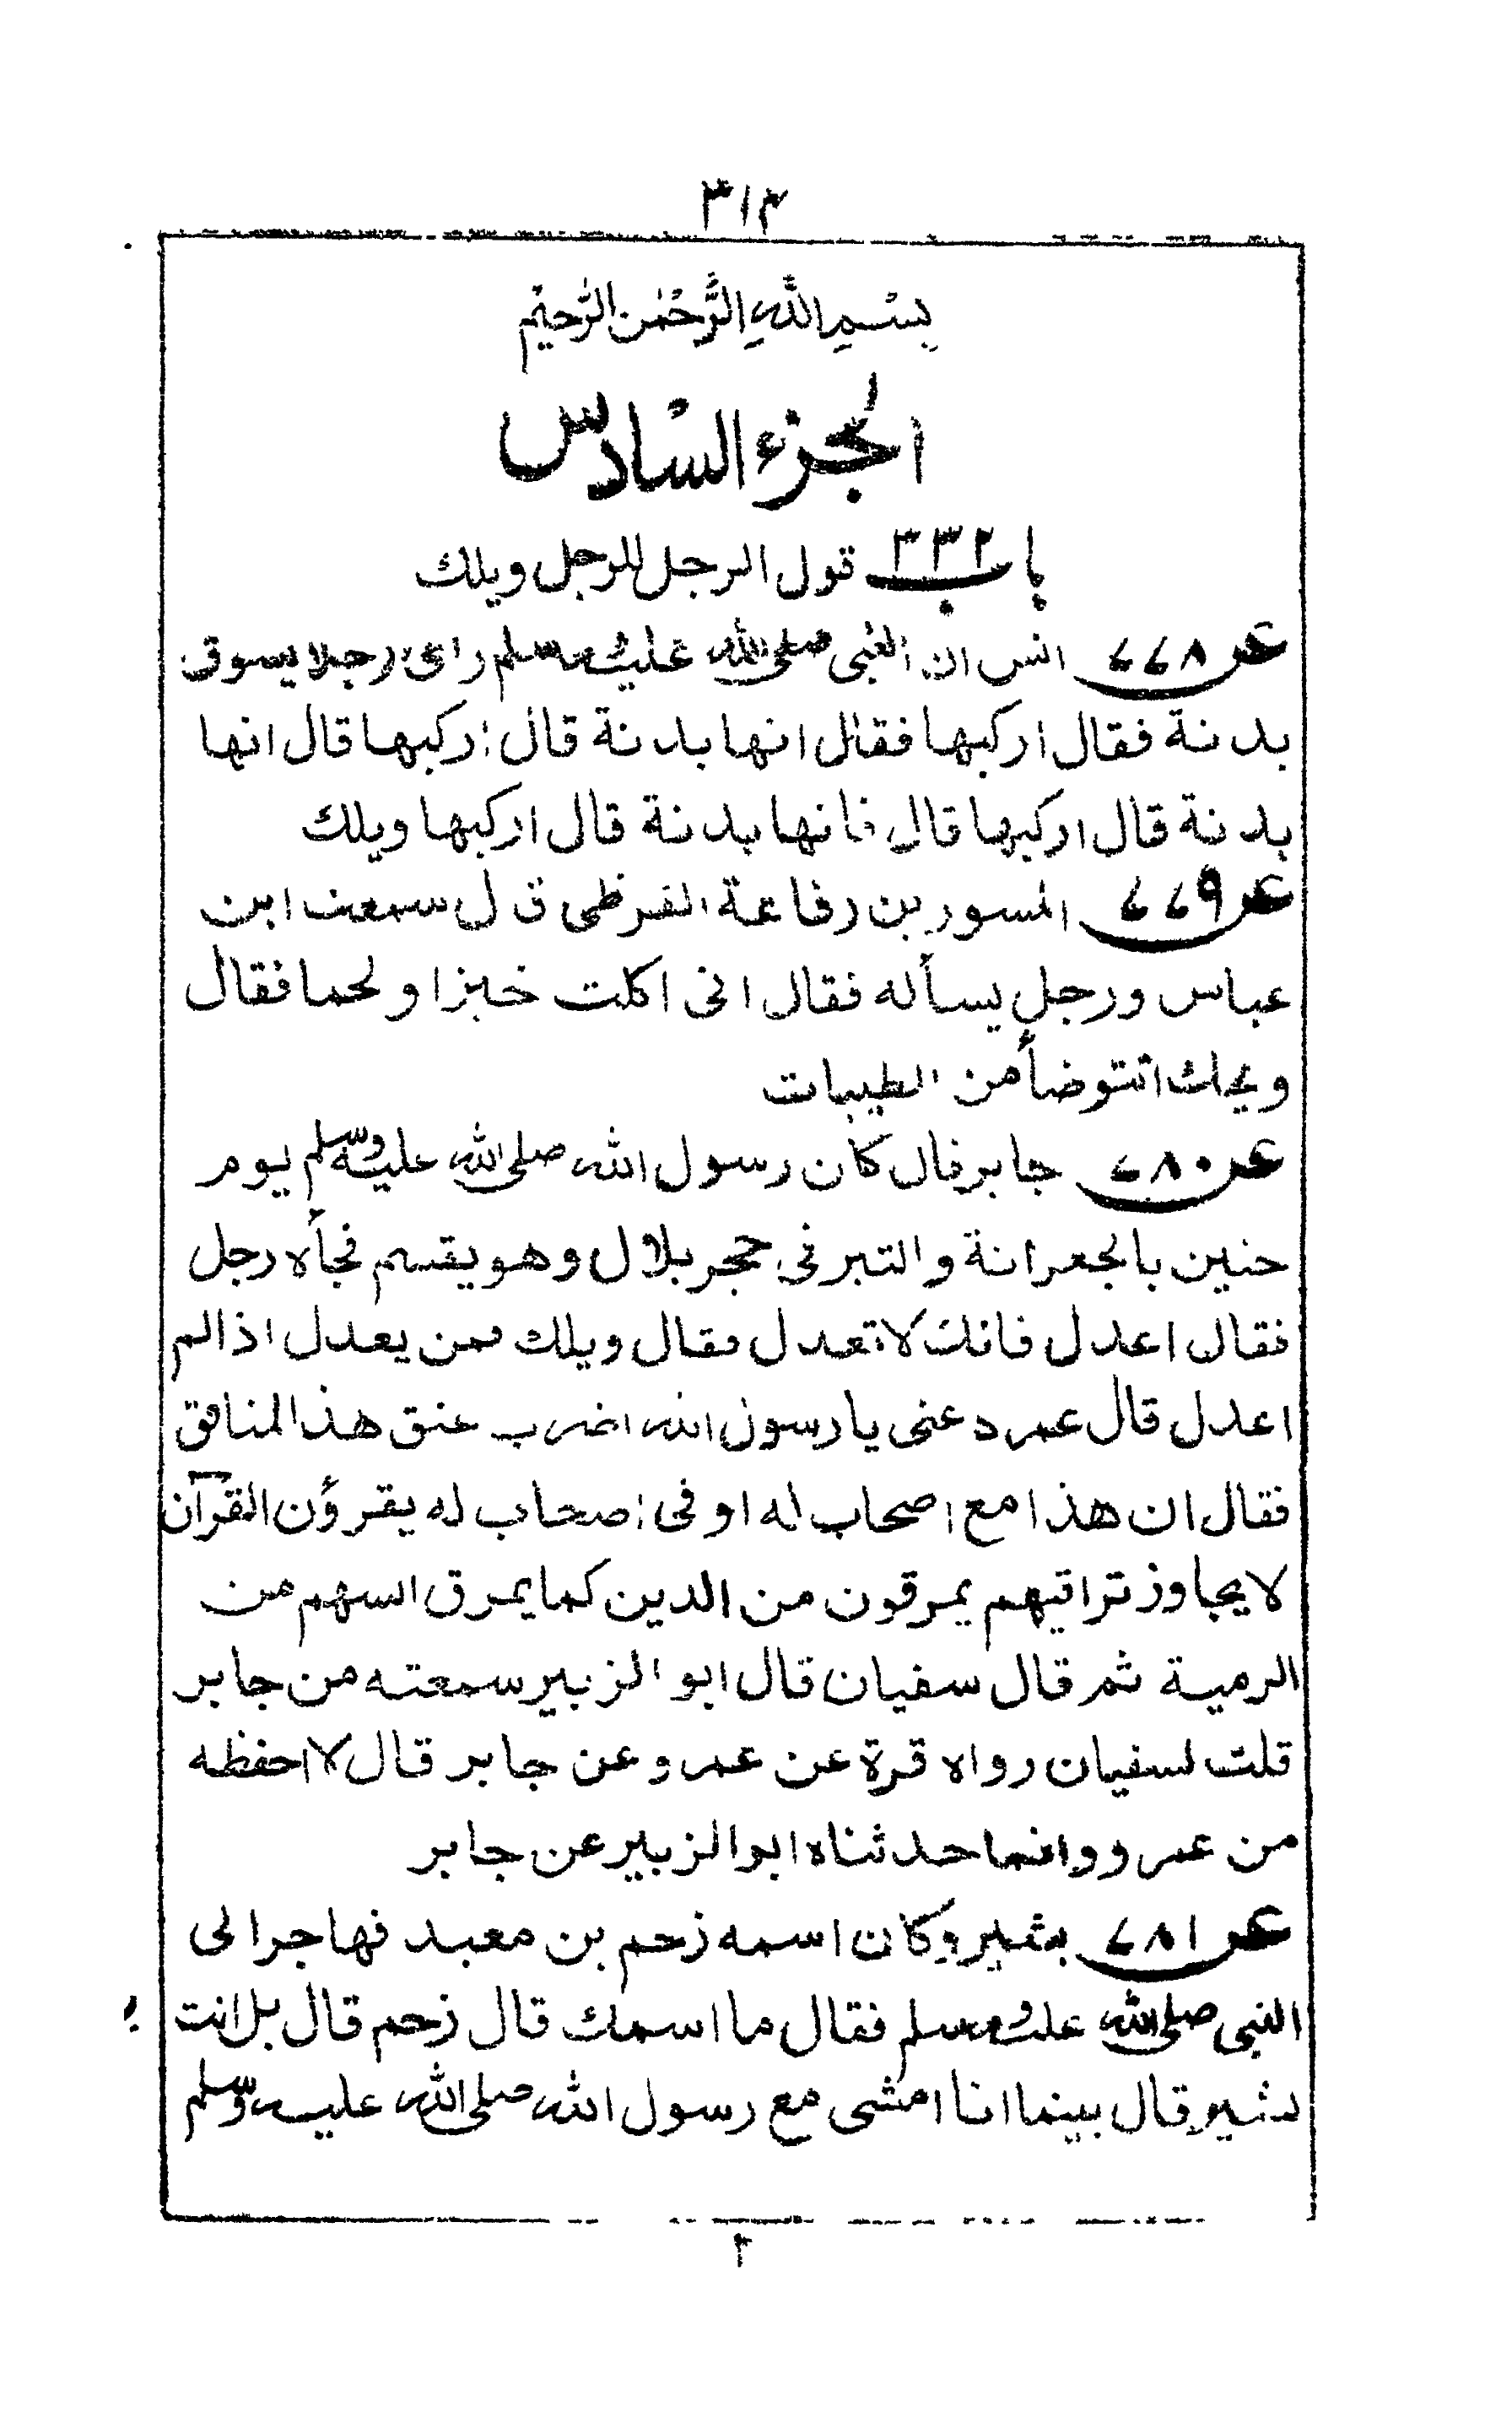 ٣١٢
بِسْمِ اللهِ الرَّحْمٰنِ الرَّحِيْم
الجزء السادس
باب ٣٣٢ قول الرجل للرجل ويلك
عن ٧٧٨ انس ان النبى صلى الله عليه وسلم راى رجلا يسوق
بدنة فقال اركبها فقال انها بدنة قال اركبها قال انها
بدنة قال اركبها قال فانها بدنة قال اركبها ويلك
عن ٧٧٩ المسور بن رفاعة القرظى قال سمعت ابن
عباس ورجل يسأله فقال انى اكلت خبزا ولحما فقال
ويحك اتتوضأ من الطيبات
عن ٧٨٠ جابر قال كان رسول الله صلى الله عليه وسلم يوم
حنين بالجعرانة والتبر فى حجر بلال وهو يقسم فجأه رجل
فقال اعدل فانك لا تعدل فقال ويلك فمن يعدل اذا لم
اعدل قال عمر دعنى يا رسول الله اضرب عنق هذا المنافق
فقال ان هذا مع اصحاب له او فى اصحاب له يقرؤن القرآن
لا يجاوز تراقيهم يمرقون من الدين كما يمرق السهم من
الرمية ثم قال سفيان قال ابو الزبير سمعته من جابر
قلت لسفيان رواه قرة عن عمرو عن جابر قال لا احفظه
من عمرو وانما حدثناه ابو الزبير عن جابر
عن ٧٨١ بشير وكان اسمه زحم بن معبد فهاجر الى
النبى صلى الله عليه وسلم فقال ما اسمك قال زحم قال بل انت
بشير قال بينما انا امشى مع رسول الله صلى الله عليه وسلم